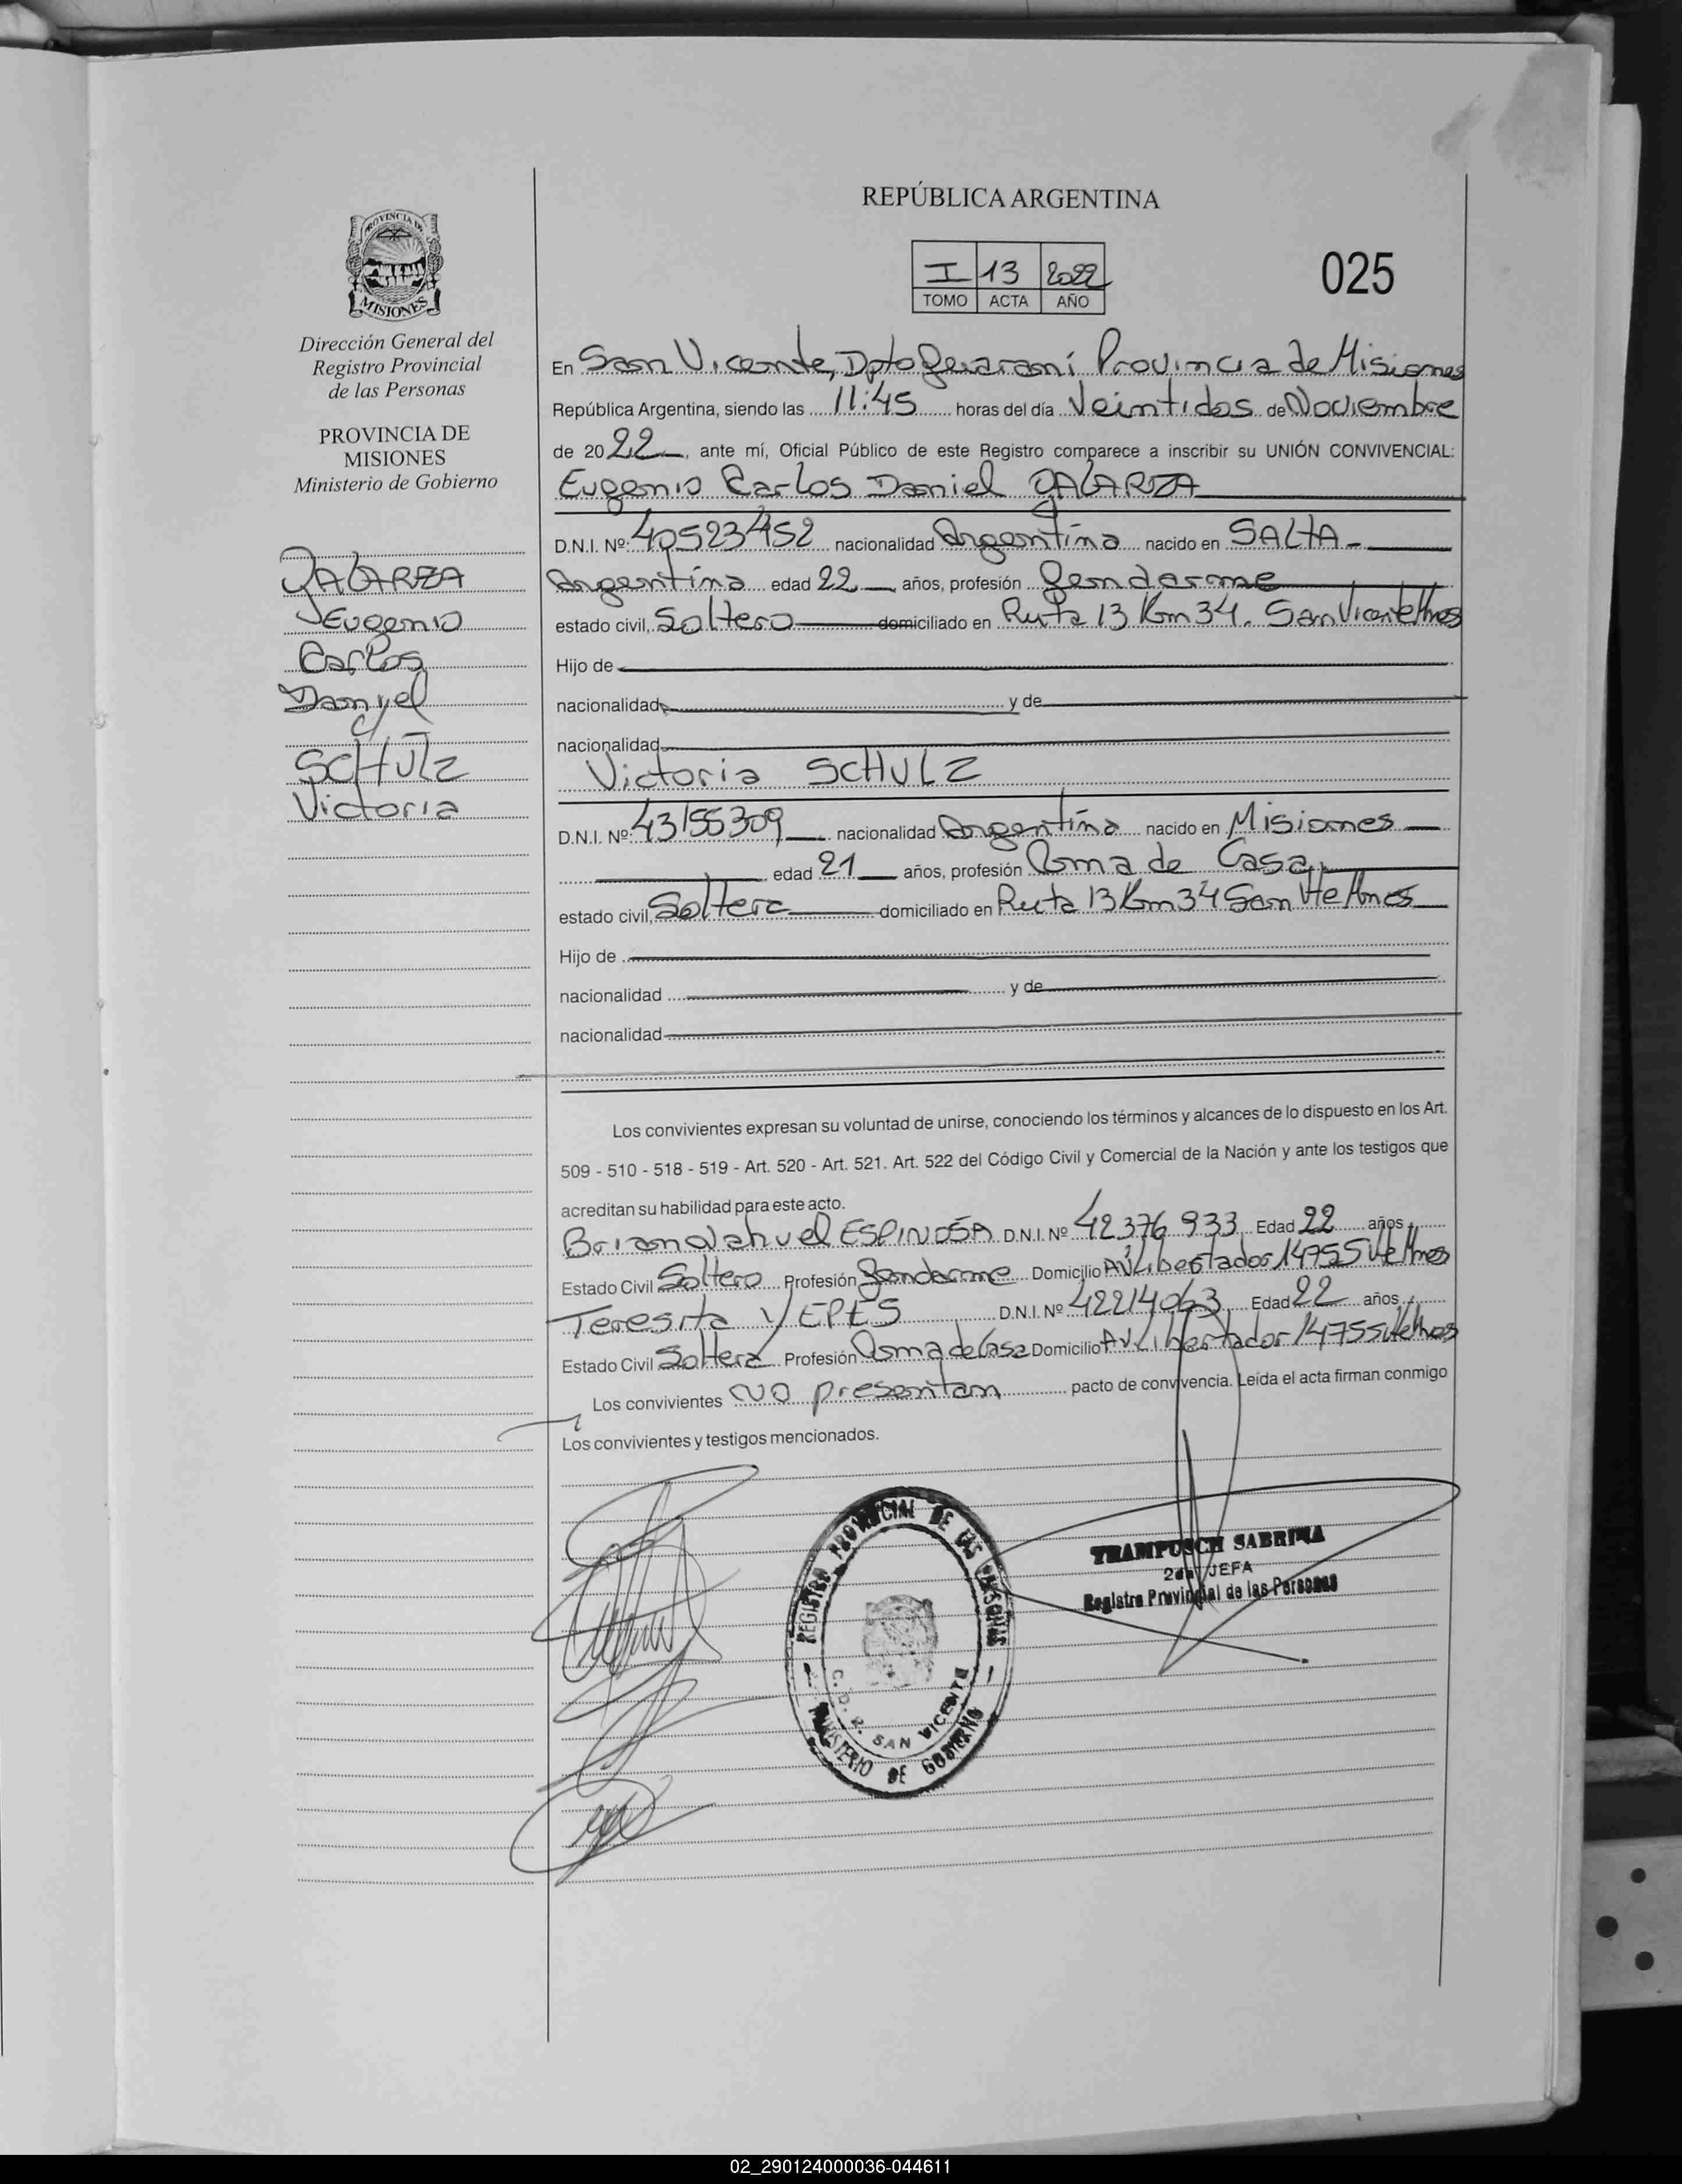 REPÚBLICA ARGENTINA
I 13 2022
TOMO ACTA AÑO
025
PROVINCIA DE
MISIONES
Dirección General del
Registro Provincial
de las Personas
PROVINCIA DE
MISIONES
Ministerio de Gobierno
GALARZA
Eugenio
Carlos
Daniel
c/
SCHULZ
Victoria
En San Vicente, Dpto Guaraní Provincia de Misiones
República Argentina, siendo las 11:45 horas del día Veintidos de Noviembre
de 2022, ante mí, Oficial Público de este Registro comparece a inscribir su UNIÓN CONVIVENCIAL:
Eugenio Carlos Daniel GALARZA
D.N.I. Nº: 40523452 nacionalidad Argentina nacido en SALTA -
Argentina edad 22 años, profesión Gendarme
estado civil, Soltero domiciliado en Ruta 13 Km 34. San Vicente Mnes
Hijo de
nacionalidad y de
nacionalidad
Victoria SCHULZ
D.N.I. Nº: 43155309 nacionalidad Argentina nacido en Misiones
edad 21 años, profesión Ama de Casa
estado civil, Soltera domiciliado en Ruta 13 Km 34 San Vte Mnes
Hijo de
nacionalidad y de
nacionalidad
Los convivientes expresan su voluntad de unirse, conociendo los términos y alcances de lo dispuesto en los Art.
509 - 510 - 518 - 519 - Art. 520 - Art. 521. Art. 522 del Código Civil y Comercial de la Nación y ante los testigos que
acreditan su habilidad para este acto.
Brian Nahuel ESPINOSA D.N.I. Nº 42376933 Edad 22 años
Estado Civil Soltero Profesión Gendarme Domicilio Av Libertador 1475 S Vte Mnes
Teresita YEPES D.N.I. Nº 42214063 Edad 22 años
Estado Civil Soltera Profesión Ama de Casa Domicilio Av Libertador 1475 S Vte Mnes
Los convivientes NO presentan pacto de convivencia. Leída el acta firman conmigo
Los convivientes y testigos mencionados.
REGISTRO PROVINCIAL DE LAS PERSONAS
C. D. R. SAN VICENTE
MINISTERIO DE GOBIERNO
TRAMPUSCH SABRINA
2da JEFA
Registro Provincial de las Personas
02_290124000036-044611